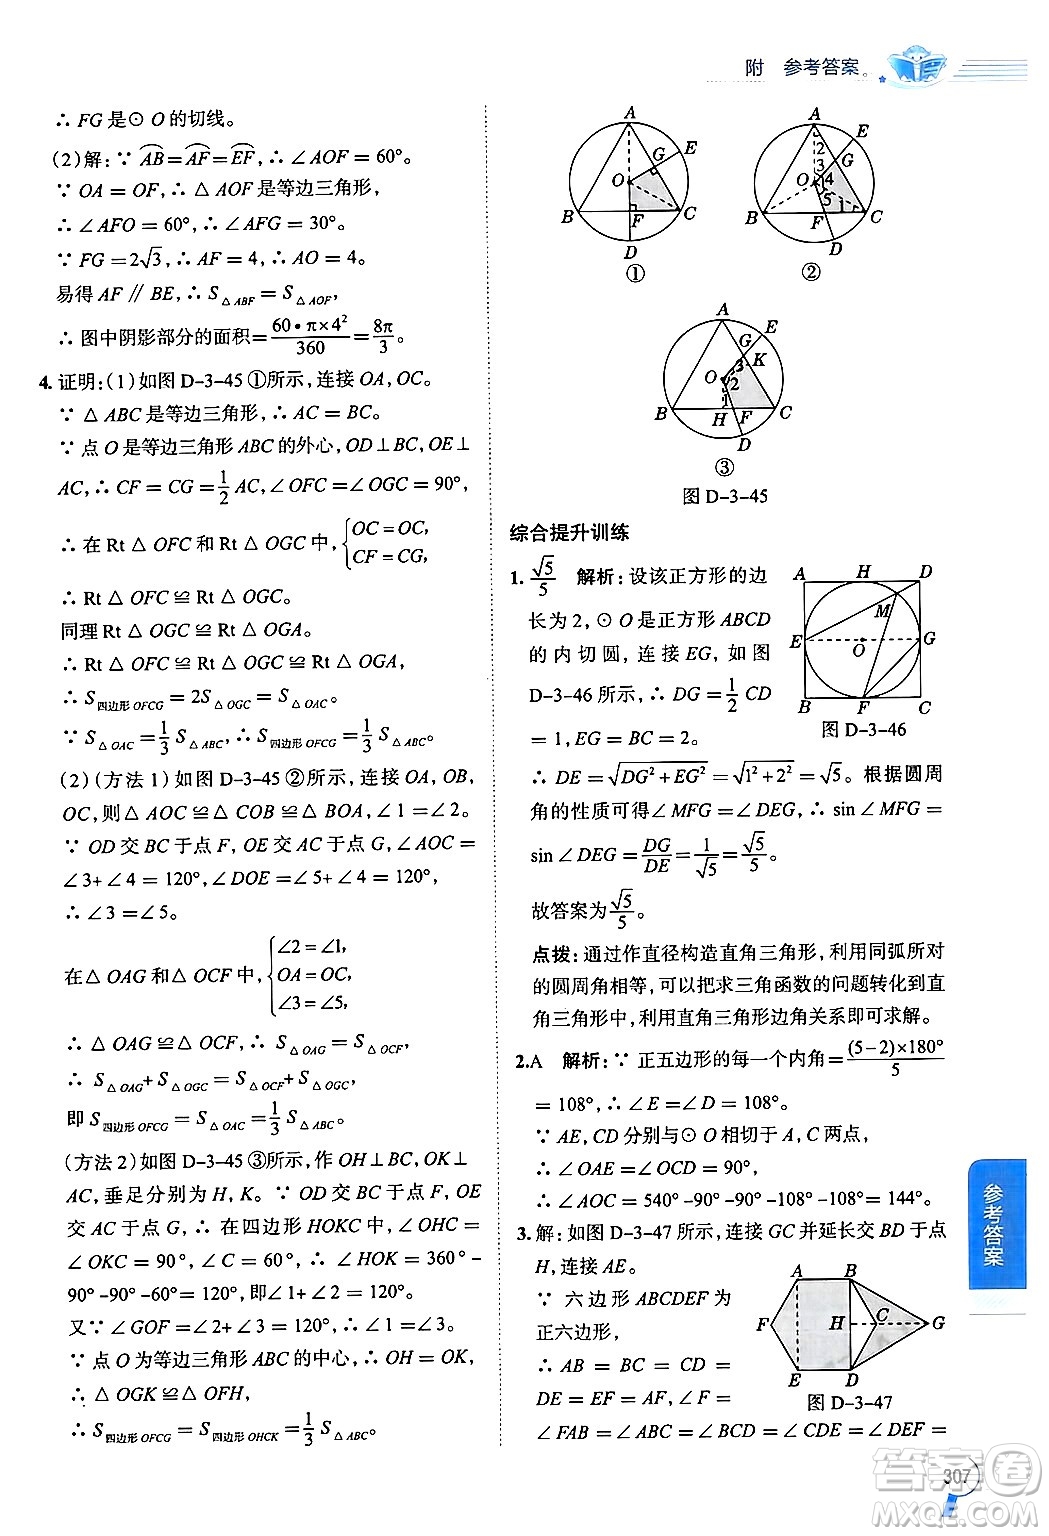 附 参考答案。
∴ FG是⊙ O的切线。
(2)解:∵ AB=AF=EF,∴ ∠AOF = 60°。
∵ OA = OF,∴ △ AOF是等边三角形,
∴ ∠AFO = 60°,∴ ∠AFG = 30°。
∵ FG=2√3,∴ AF = 4,∴ AO = 4。
易得 AF ∥ BE,∴ S△ABF = S△AOF,
∴ 图中阴影部分的面积=60•π×4²/360=8π/3。
4. 证明:(1)如图 D-3-45 ①所示,连接OA,OC。
∵ △ ABC是等边三角形,∴ AC = BC。
∵ 点O是等边三角形ABC的外心,OD⊥BC,OE⊥
AC,∴ CF = CG=1/2 AC,∠OFC=∠OGC=90°,
∴ 在 Rt △ OFC 和 Rt △ OGC 中,{OC=OC,
CF=CG,
∴ Rt △ OFC ≌ Rt △ OGC。
同理 Rt △ OGC ≌ Rt △ OGA。
∴ Rt △ OFC ≌ Rt △ OGC ≌ Rt △ OGA,
∴ S四边形OFCG = 2S△OGC = S△OAC。
∵ S△OAC=1/3 S△ABC,∴ S四边形OFCG=1/3 S△ABC。
(2)(方法 1)如图 D-3-45 ②所示,连接OA,OB,
OC,则△ AOC ≌ △ COB ≌ △ BOA,∠1=∠2。
∵ OD交BC于点F,OE交AC于点G,∠AOC=
∠3+∠4=120°,∠DOE=∠5+∠4=120°,
∴ ∠3=∠5。
在△ OAG 和△ OCF 中,{∠2=∠1,
OA=OC,
∠3=∠5,
∴ △ OAG ≌ △ OCF,∴ S△OAG = S△OCF,
∴ S△OAG+S△OGC = S△OCF+S△OGC,
即 S四边形OFCG=S△OAC=1/3 S△ABC。
(方法 2)如图 D-3-45 ③所示,作 OH⊥BC,OK⊥
AC,垂足分别为 H,K。∵ OD交BC于点F,OE
交AC于点G,∴ 在四边形HOKC中,∠OHC=
∠OKC = 90°,∠C = 60°,∴ ∠HOK = 360°-
90°-90°-60°=120°,即∠1+∠2=120°。
又∵ ∠GOF=∠2+∠3=120°,∴ ∠1=∠3。
∵ 点O为等边三角形ABC的中心,∴ OH=OK,
∴ △ OGK ≌△ OFH,
∴ S四边形OFCG = S四边形OHCK=1/3 S△ABC。
A
E
G
O
B
F
C
D
①
A
E
2
G
3
O
4
5
1
B
F
C
D
②
A
E
G
K
3
O
2
1
B
H
F
C
D
③
图 D-3-45
综合提升训练
1. √5/5 解析:设该正方形的边
长为2,⊙ O是正方形ABCD
的内切圆,连接EG,如图
D-3-46所示,∴ DG=1/2 CD
=1,EG=BC=2。
A
H
D
M
E
O
G
B
F
C
图 D-3-46
∴ DE=√DG²+EG²=√1²+2²=√5。根据圆周
角的性质可得∠MFG=∠DEG,∴ sin∠MFG=
sin∠DEG=DG/DE=1/√5=√5/5。
故答案为√5/5。
点拨:通过作直径构造直角三角形,利用同弧所对
的圆周角相等,可以把求三角函数的问题转化到直
角三角形中,利用直角三角形边角关系即可求解。
2.A 解析:∵ 正五边形的每一个内角=(5-2)×180°/5
=108°,∴ ∠E=∠D=108°。
∵ AE,CD分别与⊙ O相切于A,C两点,
∴ ∠OAE=∠OCD=90°,
∴ ∠AOC=540°-90°-90°-108°-108°=144°。
3. 解:如图 D-3-47 所示,连接GC并延长交BD于点
H,连接AE。
∵ 六边形ABCDEF为
正六边形,
∴ AB = BC = CD =
DE = EF = AF,∠F =
∠FAB=∠ABC=∠BCD=∠CDE=∠DEF=
A
B
F
H
C
G
E
D
图 D-3-47
参考答案
307
答案圈
MXQE.COM